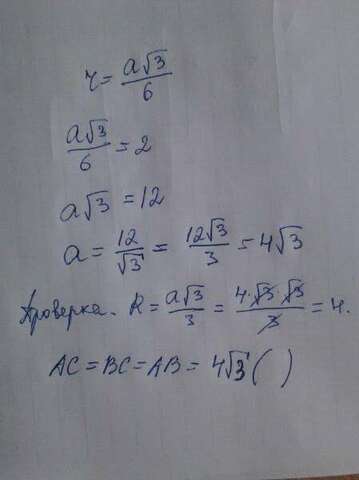 r = a√3/6
a√3/6 = 2
a√3 = 12
a = 12/√3 = 12√3/3 = 4√3
Проверка. R = a√3/3 = 4·√3·√3/3 = 4.
AC = BC = AB = 4√3 ( )